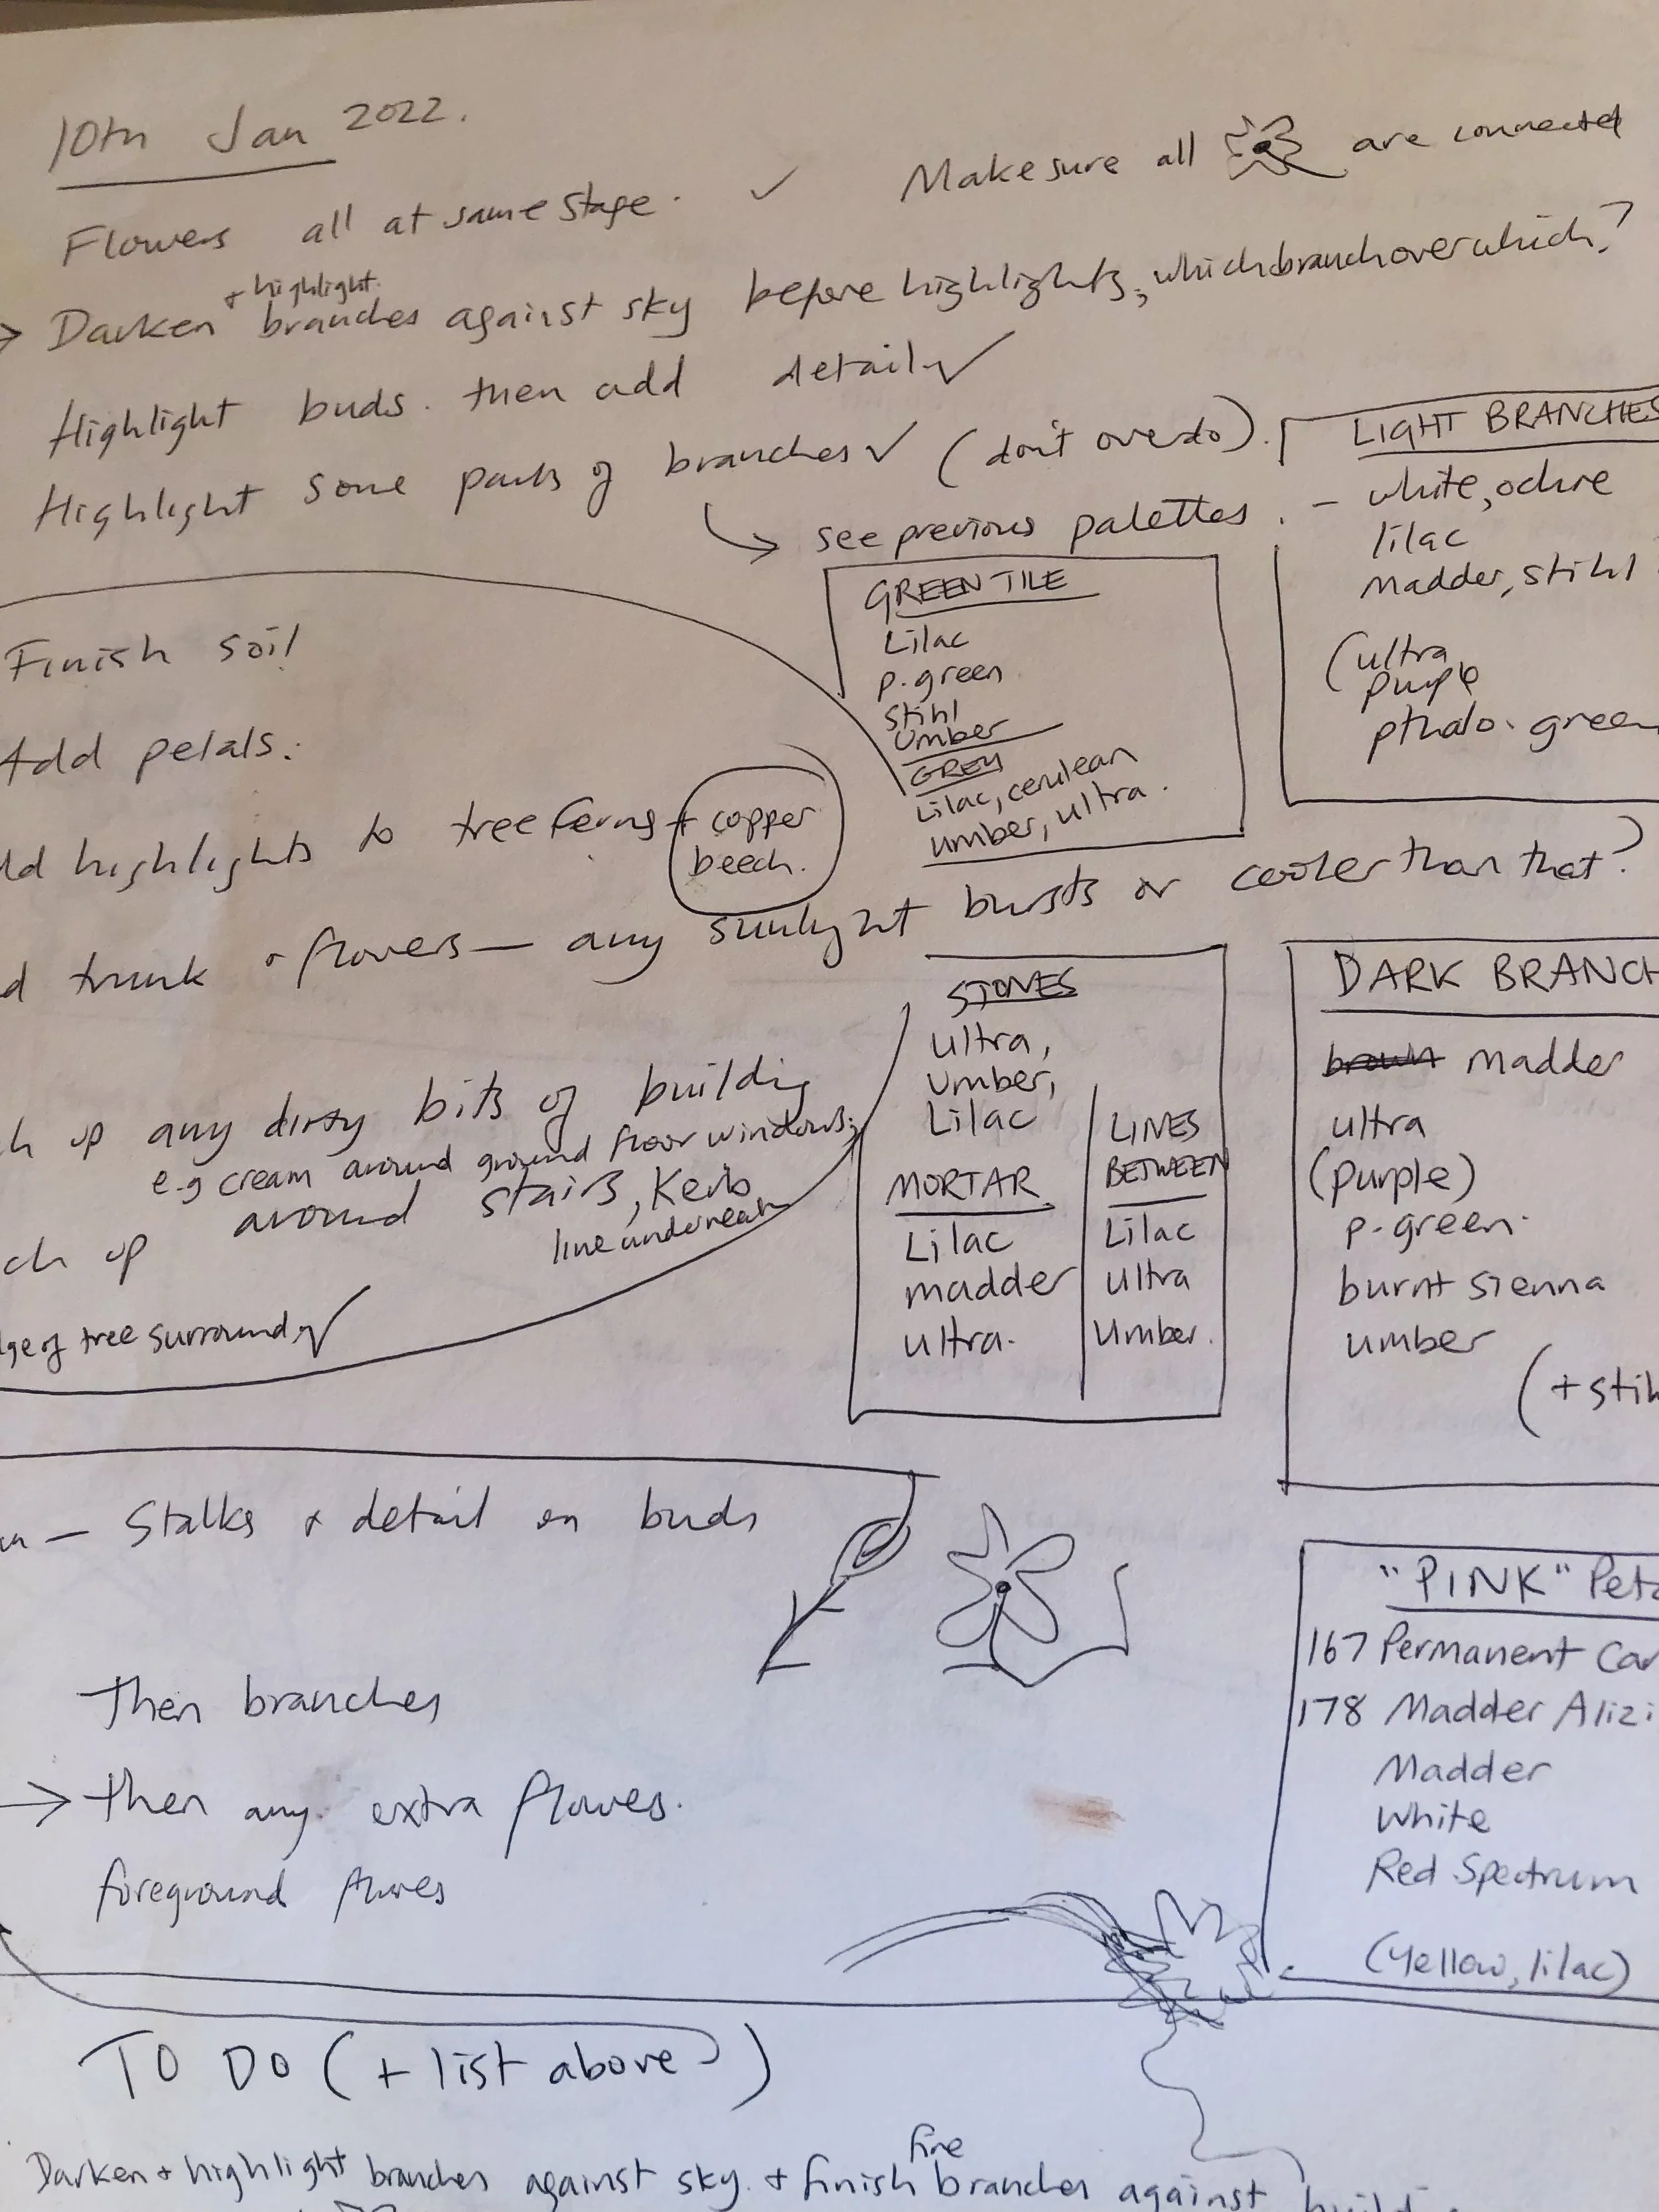 10th Jan 2022.
Flowers all at same stage. ✓ Make sure all are connected
+ highlight.
→ Darken branches against sky before highlights, which branch over which?
Highlight buds. then add detail ✓
Highlight some parts of branches ✓ (don't overdo).
→ see previous palettes.
LIGHT BRANCHES
- white, ochre
lilac
madder, stihl
(ultra
purple
pthalo. green
GREEN TILE
Lilac
p. green
Stihl
Umber
GREY
Lilac, cerulean
umber, ultra.
Finish soil
Add petals.
ld highlights to tree ferns + copper
beech.
d trunk + flowers — any sunlight bursts or cooler than that?
STONES
ultra,
umber,
Lilac
MORTAR
Lilac
madder
ultra.
LINES
BETWEEN
Lilac
ultra
umber.
DARK BRANCH
brown madder
ultra
(purple)
p. green.
burnt sienna
umber
(+ stih
ch up any dirty bits of building
e.g cream around ground floor windows,
around stairs, Kerb
line underneath
ch up
ge of tree surround. ✓
— Stalks + detail on buds
Then branches
→ then any extra flowers.
foreground flowers
"PINK" Peta
167 Permanent Car
178 Madder Alizi
Madder
White
Red Spectrum
(Yellow, lilac)
TO DO (+ list above)
fine
Darken + highlight branches against sky. + finish branches against build